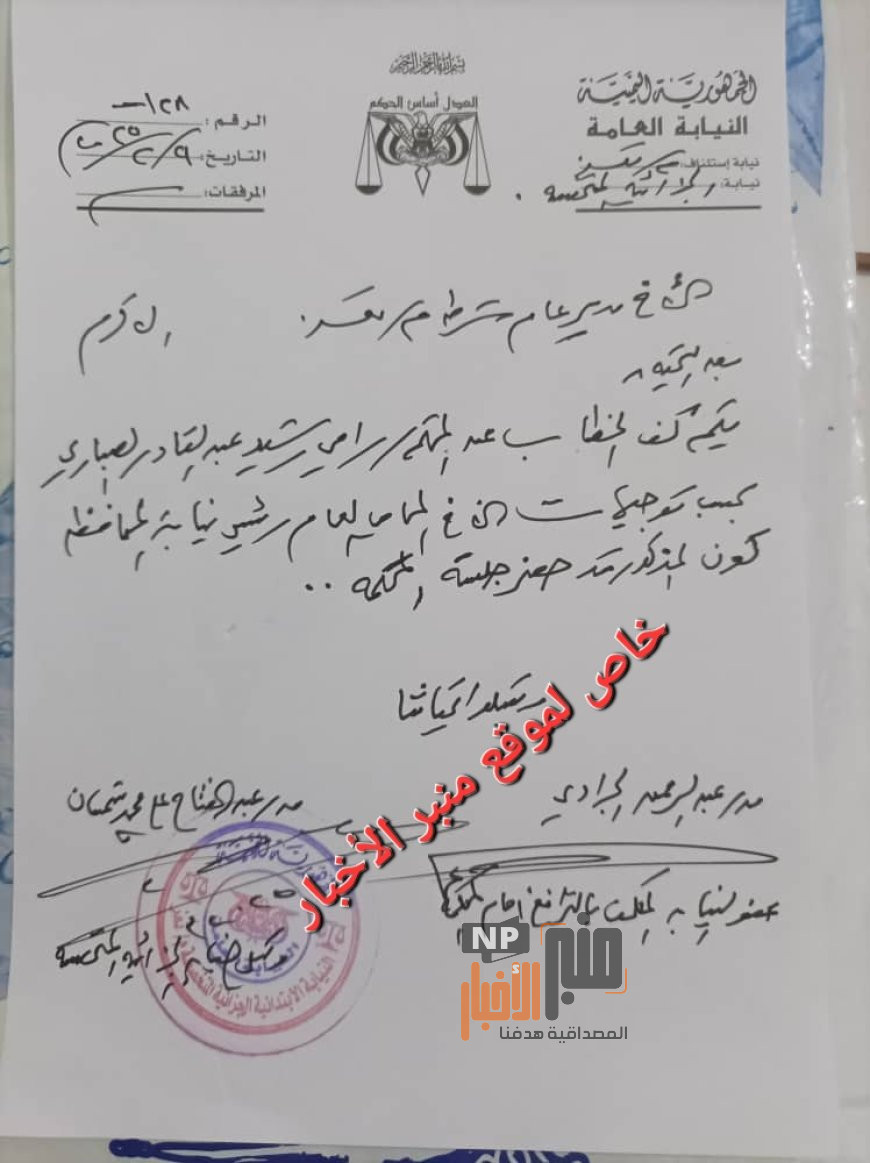 بسم الله الرحمن الرحيم
الجمهورية اليمنية
النيابة العامة
نيابة إستئناف: م/ تعز
نيابة: الجزائية المتخصصة
العدل أساس الحكم
الرقم: ١٢٨
التاريخ: ٩/٢/٢٠٢٥
المرفقات:
الأخ مدير عام شرطة م/ تعز. الأكرم
بعد التحية،
يتم كف الخطاب عن المتهم/ رامي رشيد عبدالقادر الصباري
بحسب توجيهات الأخ المحامي العام رئيس نيابة المحافظة
كون المذكور قد حضر جلسة المحكمة ..
وتقبلوا تحياتنا
عبدالرحمن الجرادي
عضو النيابة المكلف بالترافع أمام المحكمة
عبدالفتاح علي محمد شمسان
وكيل نيابة الجزائية المتخصصة
النيابة الابتدائية الجزائية
خاص لموقع منبر الأخبار
NP
منبر الأخبار
المصداقية هدفنا